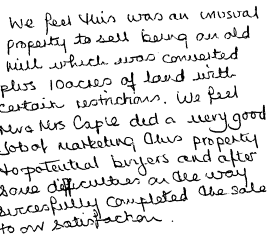 We feel this was an unusual
property to sell being an old
mill which was converted
plus 10 acres of land with
certain restrictions. We feel
Mrs Caple did a very good
job of marketing this property
to potential buyers and after
some difficulties on the way
succesfully completed the sale
to our satisfaction.